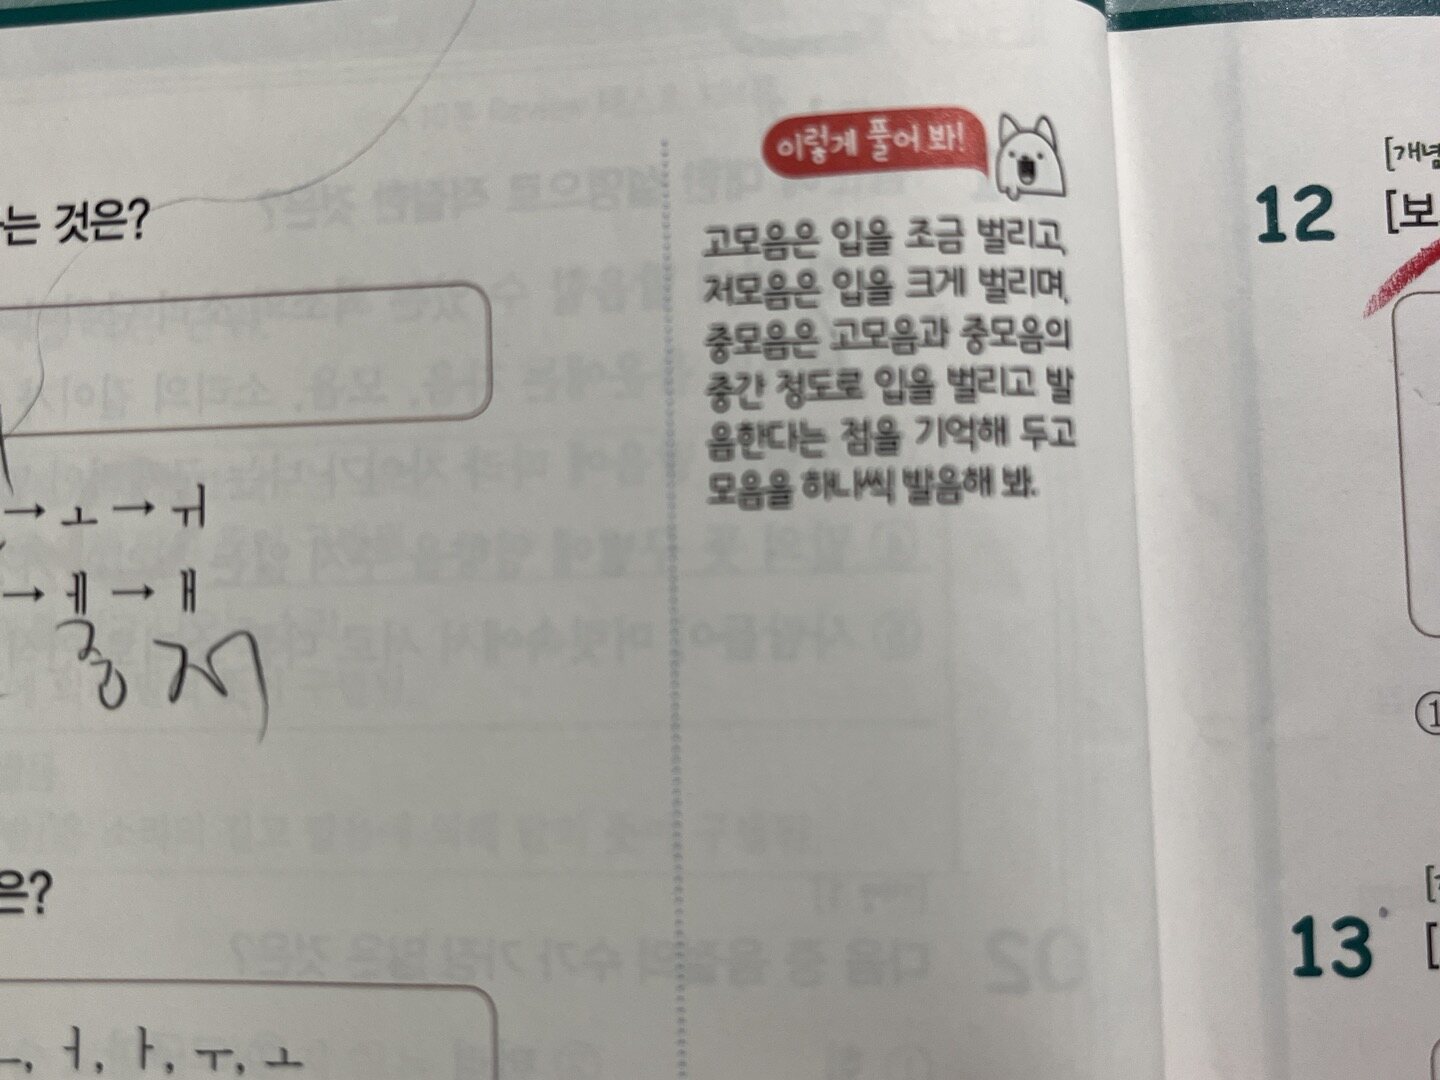 는 것은?
→ ㅗ → ㅟ
→ ㅔ → ㅐ
중 저
은?
ㅡ, ㅓ, ㅏ, ㅜ, ㅗ
이렇게 풀어 봐!
고모음은 입을 조금 벌리고,
저모음은 입을 크게 벌리며,
중모음은 고모음과 중모음의
중간 정도로 입을 벌리고 발
음한다는 점을 기억해 두고
모음을 하나씩 발음해 봐.
[개념
12 [보
①
13 [